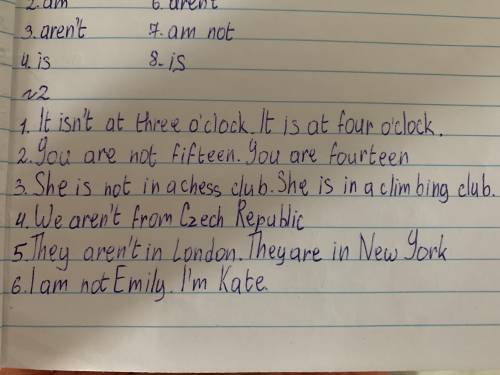 2. am 6. aren't
3. aren't 7. am not
4. is 8. is
№2
1. It isn't at three o'clock. It is at four o'clock.
2. You are not fifteen. You are fourteen
3. She is not in a chess club. She is in a climbing club.
4. We aren't from Czech Republic
5. They aren't in London. They are in New York
6. I am not Emily. I'm Kate.